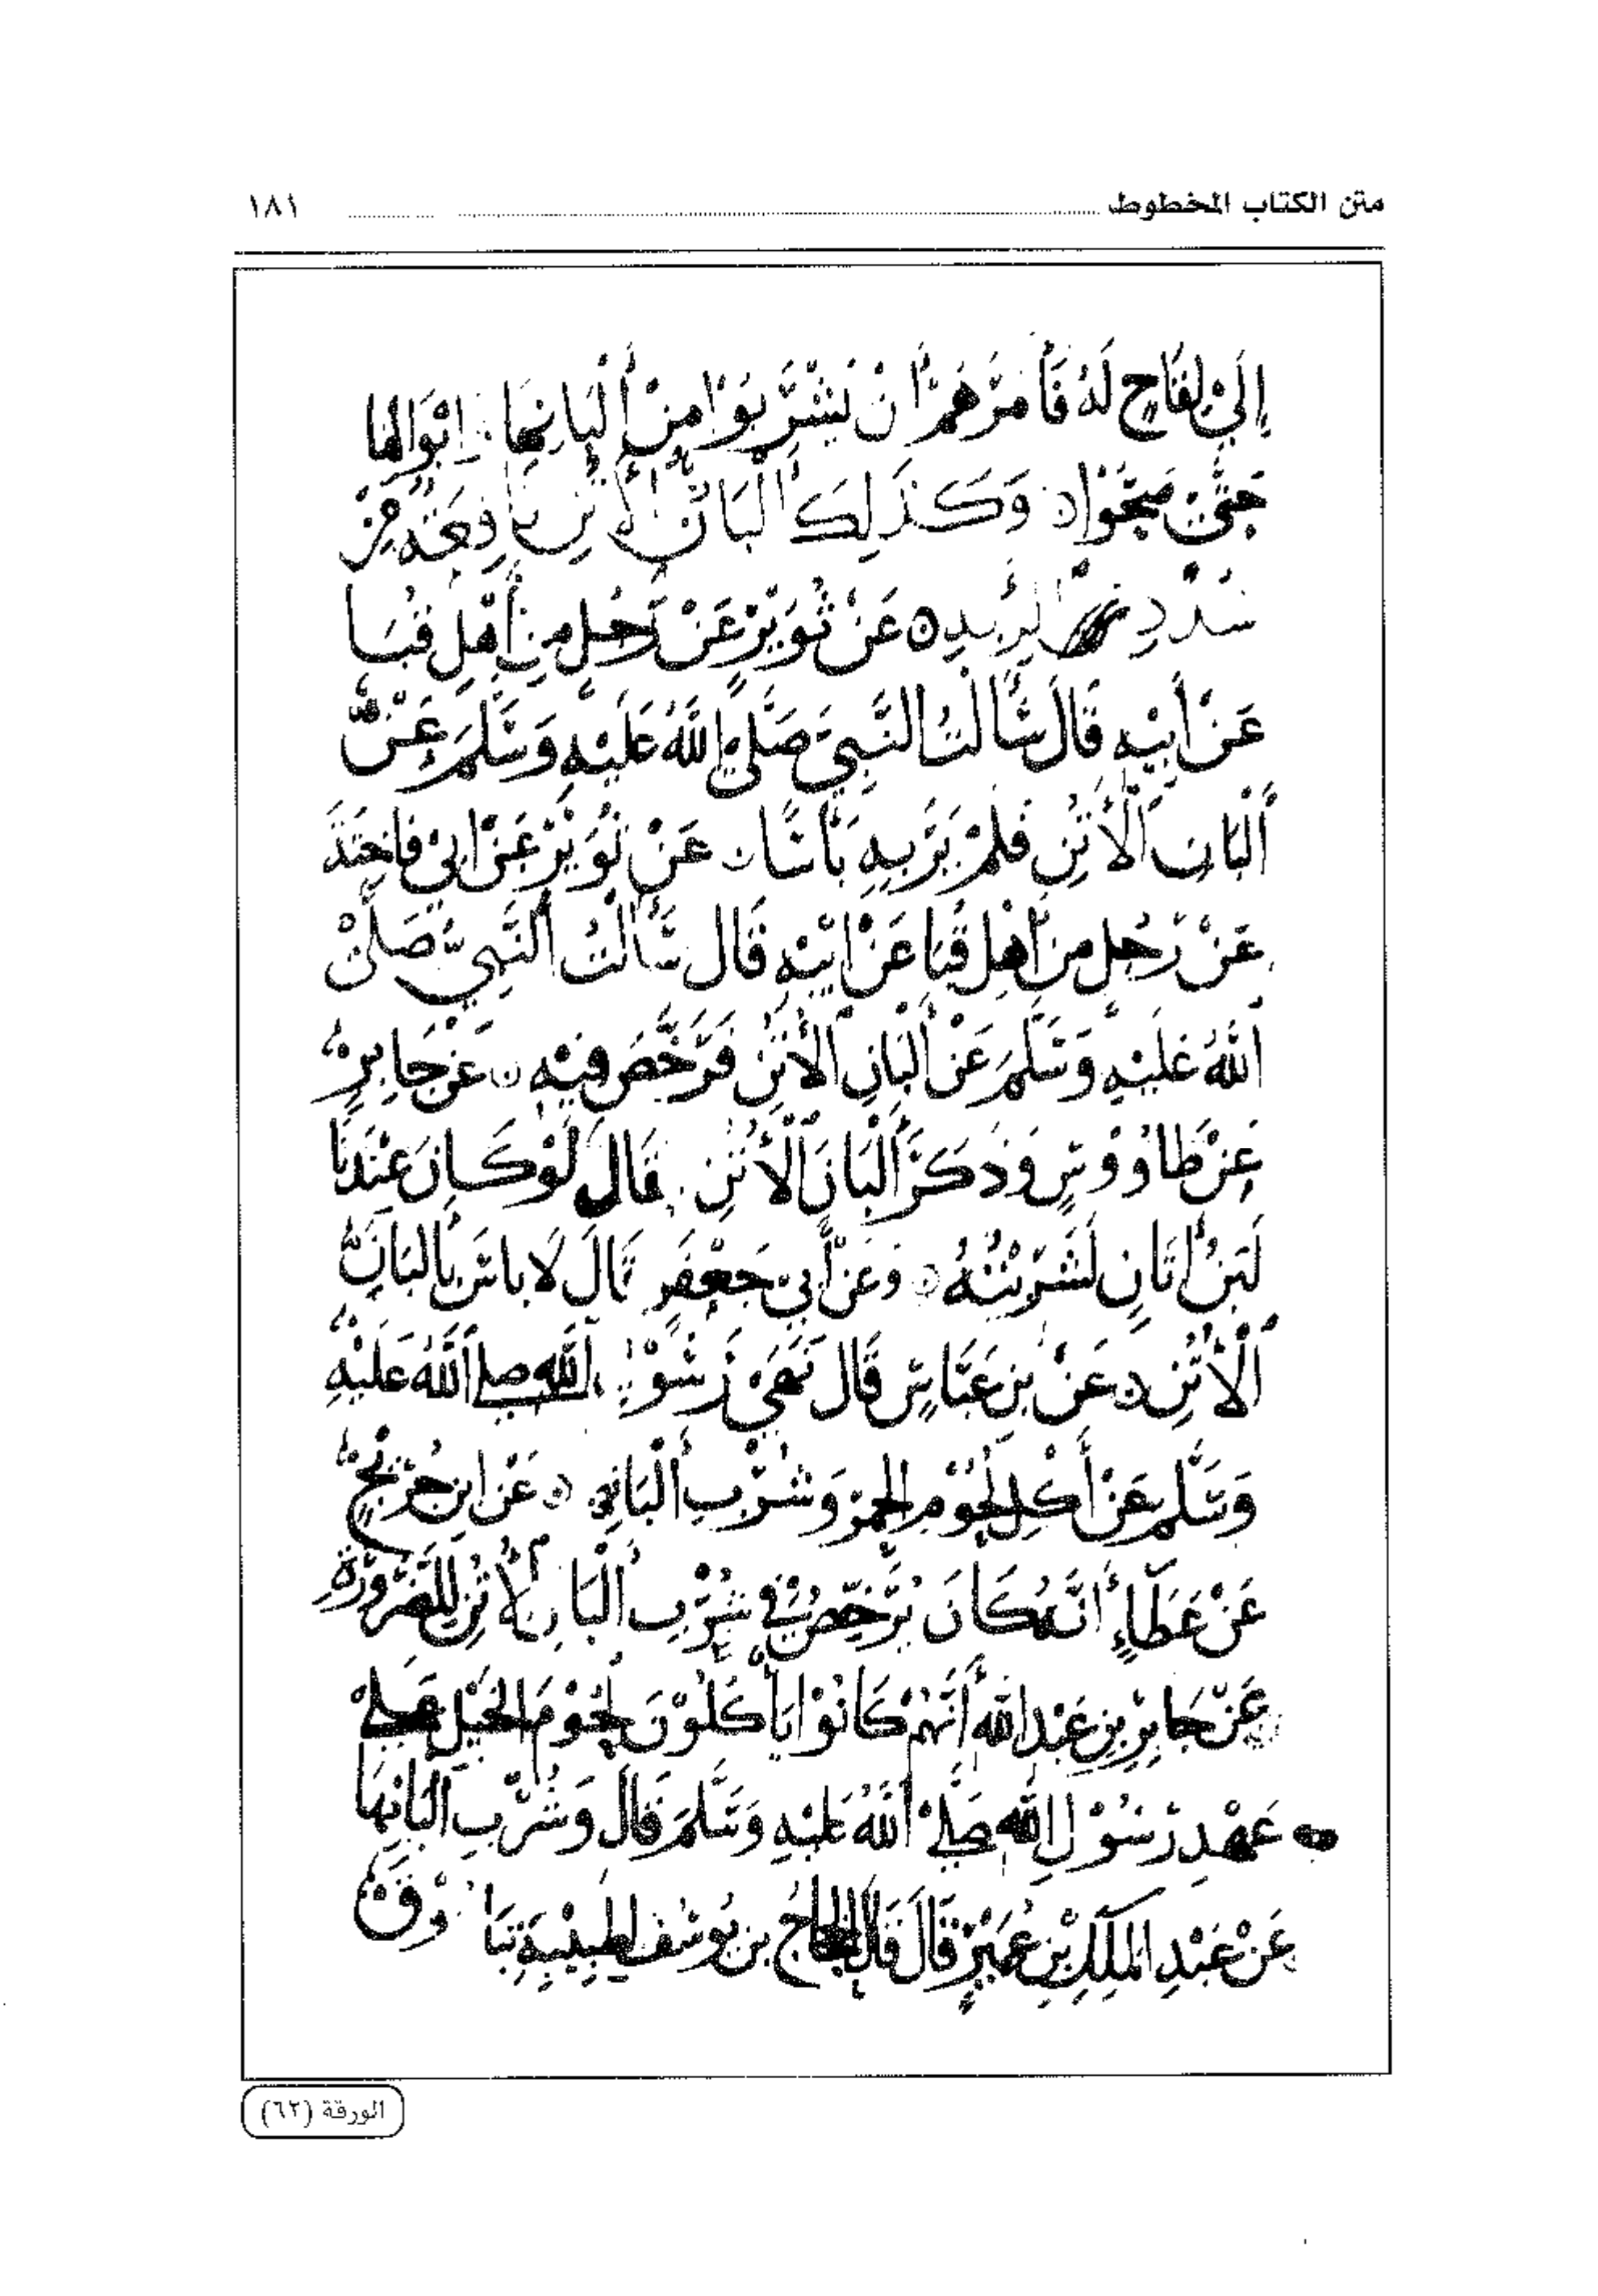 متن الكتاب المخطوط ١٨١
إِلَى لِقَاحٍ لَهُ فَأَمَرَهُمْ أَنْ يَشْرَبُوا مِنْ أَلْبَانِهَا وَأَبْوَالِهَا
حَتَّى صَحُّوا وَكَذَلِكَ أَلْبَانُ الأُتُنِ نَافِعَةٌ مِنْ
عَنْ ثُوَيْرٍ عَنْ رَجُلٍ مِنْ أَهْلِ قُبَا
عَنْ أَبِيْهِ قَالَ سَأَلْتُ النَّبِيَّ صَلَّى اللهُ عَلَيْهِ وَسَلَّمَ عَنْ
أَلْبَانِ الأُتُنِ فَلَمْ يَرَ بِهِ بَأْسًا عَنْ ثُوَيْرٍ عَنْ أَبِي فَاخِتَةَ
عَنْ رَجُلٍ مِنْ أَهْلِ قُبَا عَنْ أَبِيْهِ قَالَ سَأَلْتُ النَّبِيَّ صَلَّى
اللهُ عَلَيْهِ وَسَلَّمَ عَنْ أَلْبَانِ الأُتُنِ فَرَخَّصَ فِيْهِ عَنْ جَابِرٍ
عَنْ طَاوُوْسٍ وَذَكَرَ أَلْبَانَ الأُتُنِ فَقَالَ لَوْ كَانَ عِنْدَنَا
لَبَنُ أَتَانٍ لَشَرِبْتُهُ وَعَنْ أَبِي جَعْفَرٍ قَالَ لَا بَاسَ بِأَلْبَانِ
الأُتُنِ عَنْ بْنِ عَبَّاسٍ قَالَ نَهَى رَسُوْلُ اللهِ صلى اللهُ عَلَيْهِ
وَسَلَّمَ عَنْ أَكْلِ لُحُوْمِ الحُمُرِ وَشُرْبِ أَلْبَانِهَا عَنْ ابْنِ جُرَيْجٍ
عَنْ عَطَاءٍ أَنَّهُ كَانَ يُرَخِّصُ فِي شُرْبِ أَلْبَانِ الأُتُنِ لِلضَّرُوْرَةِ
عَنْ جَابِرِ بْنِ عَبْدِ اللهِ أَنَّهُمْ كَانُوْا يَأْكُلُوْنَ لُحُوْمَ الخَيْلِ عَلَى
عَهْدِ رَسُوْلِ اللهِ صَلَّى اللهُ عَلَيْهِ وَسَلَّمَ قَالَ وَشُرْبِ أَلْبَانِهَا
عَنْ عَبْدِ المَلِكِ بْنِ عُمَيْرٍ قَالَ قَالَ الحَجَّاجُ بن يُوْسُفَ لِطَبِيْبِهِ تَيَاذُوْقَ
الورقة (٦٢)